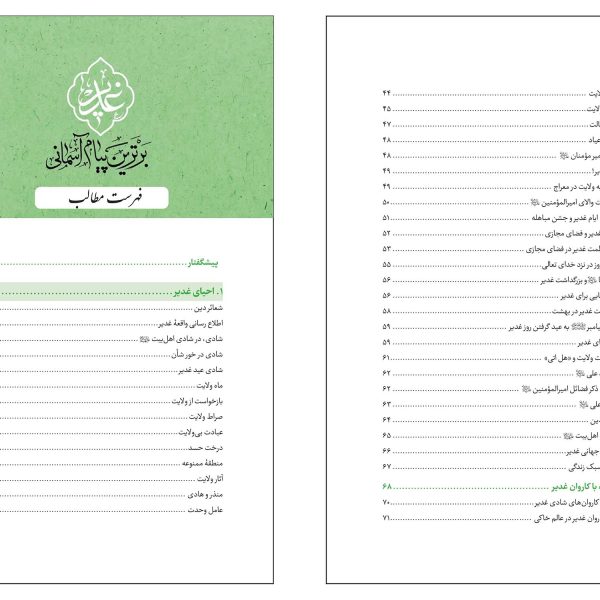 غدیر
برترین پیام آسمانی
فهرست مطالب
پیشگفتار
۱. احیای غدیر
شعائر دین
اطلاع رسانی واقعهٔ غدیر
شادی، در شادی اهل‌بیت
شادی در خور شأن
شادی عید غدیر
ماه ولایت
بازخواست از ولایت
صراط ولایت
عبادت بی‌ولایت
درخت حسد
منطقهٔ ممنوعه
آثار ولایت
منذر و هادی
عامل وحدت
۴۴
۴۵
۴۷
۴۸
مؤمنان ۴۸
۴۹
ولایت در معراج ۴۹
والای امیرالمؤمنین ۵۰
ایام غدیر و جشن مباهله ۵۱
غدیر و فضای مجازی ۵۲
غدیر در فضای مجازی ۵۳
در نزد خدای تعالی ۵۵
و بزرگداشت غدیر ۵۶
برای غدیر ۵۶
غدیر در بهشت ۵۸
به عید گرفتن روز غدیر ۵۹
غدیر ۵۹
ولایت و «هل اتی» ۶۱
علی ۶۲
ذکر فضائل امیرالمؤمنین ۶۲
علی ۶۳
۶۴
اهل‌بیت ۶۵
جهانی غدیر ۶۶
سبک زندگی ۶۷
با کاروان غدیر ۶۸
کاروان‌های شادی غدیر ۷۰
غدیر در عالم خاکی ۷۱